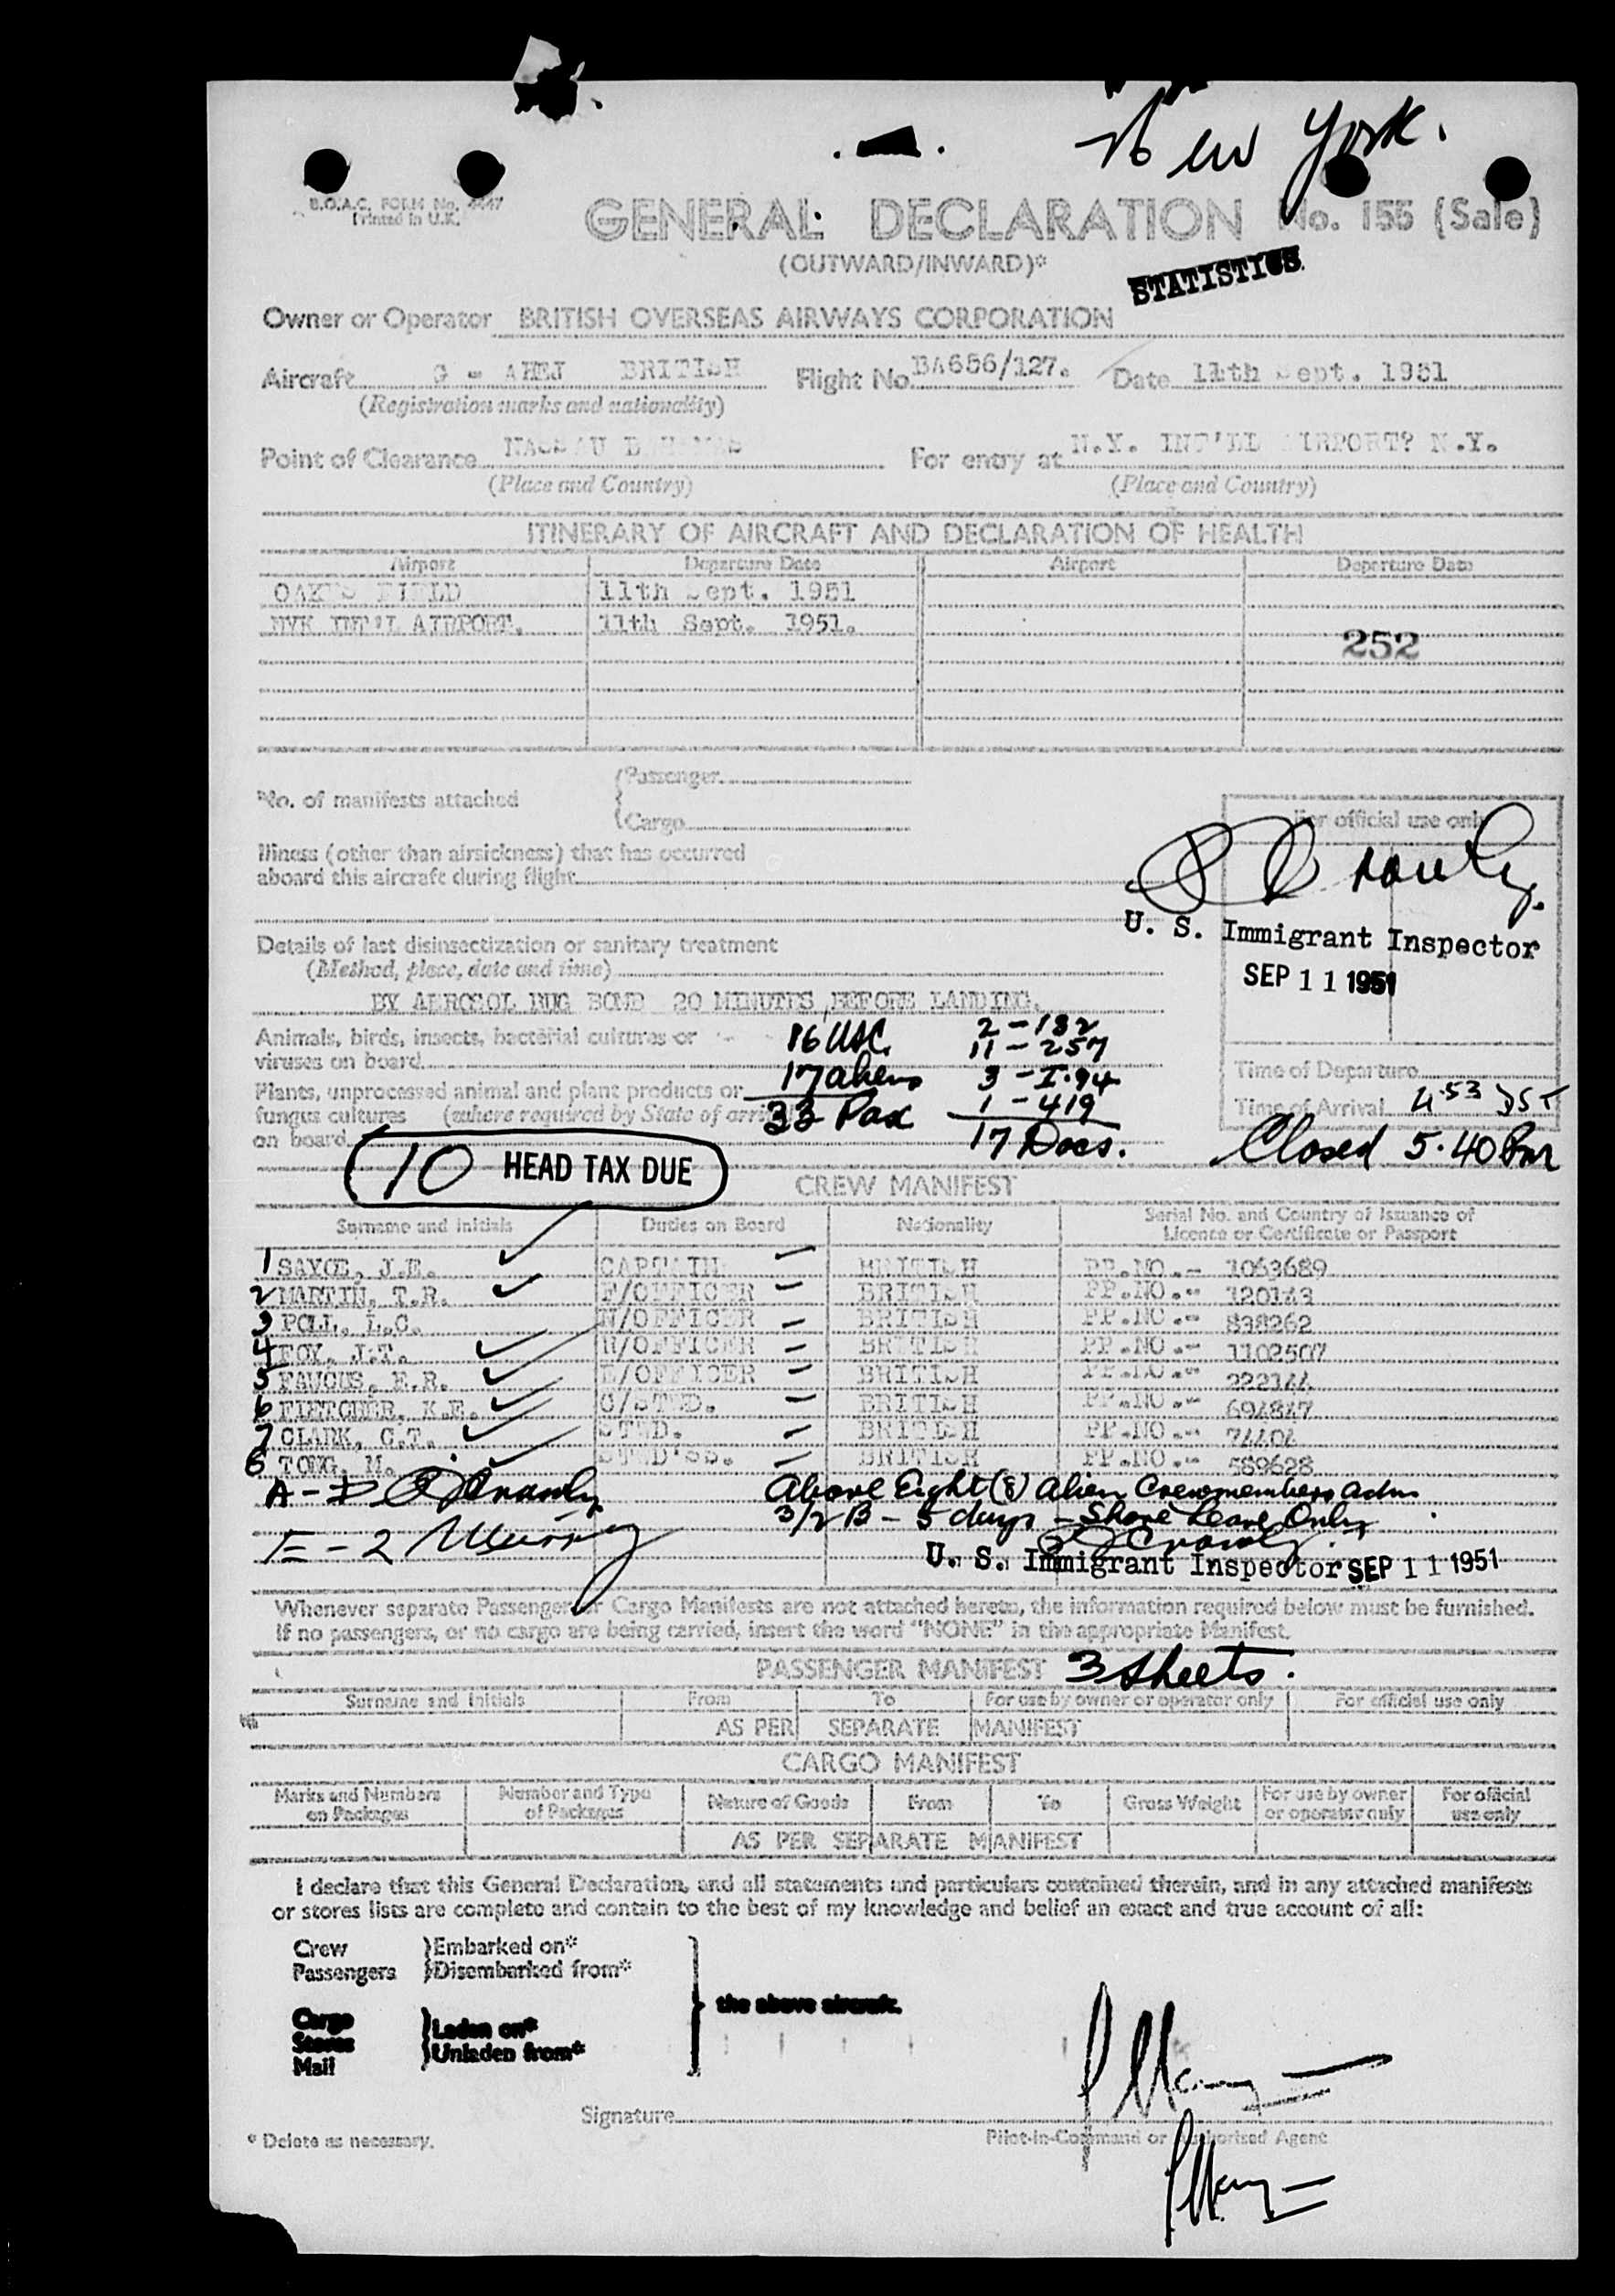 New York.
B.O.A.C. FORM No. 4447
Printed in U.K.
GENERAL DECLARATION No. 155 (Sale)
(OUTWARD/INWARD)*
STATISTICS
Owner or Operator BRITISH OVERSEAS AIRWAYS CORPORATION
Aircraft G - AHEJ BRITISH Flight No. BA686/127. Date 11th Sept. 1951
(Registration marks and nationality)
Point of Clearance NASSAU BAHAMAS For entry at N.Y. INT'LL AIRPORT? N.Y.
(Place and Country) (Place and Country)
ITINERARY OF AIRCRAFT AND DECLARATION OF HEALTH
Airport Departure Date Airport Departure Date
OAKES FIELD 11th Sept. 1951
NYK INT'L AIRPORT. 11th Sept. 1951.
252
No. of manifests attached
Passenger
Cargo
For official use only
Illness (other than airsickness) that has occurred
aboard this aircraft during flight
U. S. Immigrant Inspector
SEP 11 1951
Details of last disinsectization or sanitary treatment
(Method, place, date and time)
BY AEROSOL BUG BOMB 20 MINUTES BEFORE LANDING.
Animals, birds, insects, bacterial cultures or
viruses on board
16 USC. 2 - 182
11 - 257
17 aliens 3 - I.94
33 Pax 1 - 419
17 Docs.
Plants, unprocessed animal and plant products or
fungus cultures (where required by State of
on board
Time of Departure
Time of Arrival 4.53 DST
Closed 5.40 Pm
10 HEAD TAX DUE
CREW MANIFEST
Surname and Initials Duties on Board Nationality Serial No. and Country of Issuance of
Licence or Certificate or Passport
1 SAYCE, J.E. CAPTAIN BRITISH PP.NO.- 1063689
2 MARTIN, T.R. F/OFFICER BRITISH PP.NO.- 120143
3 POLL, L.C. N/OFFICER BRITISH PP.NO.- 838262
4 FOY, J.T. R/OFFICER BRITISH PP.NO.- 1102507
5 FAUCUS, E.R. E/OFFICER BRITISH PP.NO.- 222144
6 FLETCHER, K.E. C/STWD. BRITISH PP.NO.- 694847
7 CLARK, C.T. STWD. BRITISH PP.NO.- 74404
8 TONG, M. STWD'SS. BRITISH PP.NO.- 589628
Above Eight (8) Alien Crewmembers adm
3/2 B - 5 days - Shore Leave Only
U. S. Immigrant Inspector SEP 11 1951
Whenever separate Passenger or Cargo Manifests are not attached hereto, the information required below must be furnished.
If no passengers, or no cargo are being carried, insert the word "NONE" in the appropriate Manifest.
PASSENGER MANIFEST 3 sheets.
Surname and Initials From To For use by owner or operator only For official use only
AS PER SEPARATE MANIFEST
CARGO MANIFEST
Marks and Numbers on Packages Number and Type of Packages Nature of Goods From To Gross Weight For use by owner or operator only For official use only
AS PER SEPARATE MANIFEST
I declare that this General Declaration, and all statements and particulars contained therein, and in any attached manifests
or stores lists are complete and contain to the best of my knowledge and belief an exact and true account of all:
Crew Embarked on*
Passengers Disembarked from*
the above aircraft.
Cargo
Stores Laden on*
Mail Unladen from*
Signature
Pilot-in-Command or Authorised Agent
* Delete as necessary.